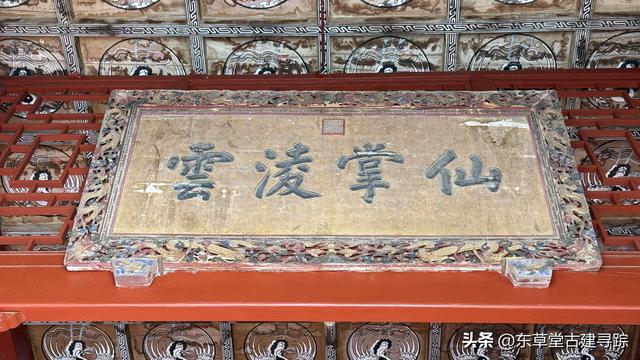 仙掌凌雲
头条 @东草堂古建寻踪